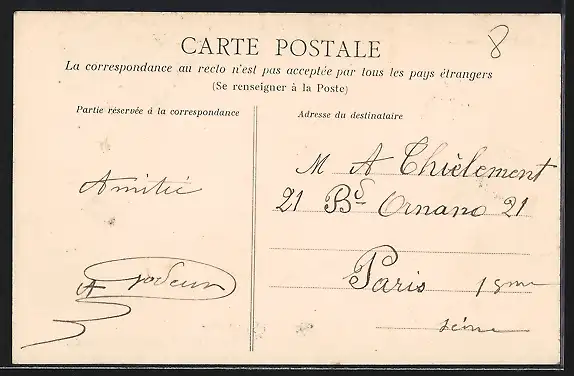 8
CARTE POSTALE
La correspondance au recto n'est pas acceptée par tous les pays étrangers
(Se renseigner à la Poste)
Partie réservée à la correspondance
Adresse du destinataire
Amitié
M A Thièlement
21 Bd Ornano 21
Paris 18me
Seine
A